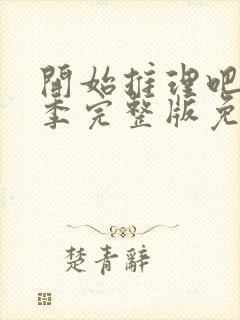 開始推理吧
季完整版免
楚青辭